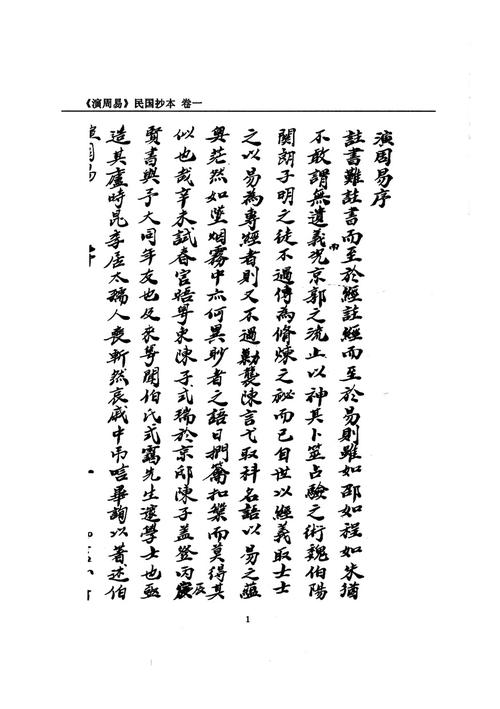 《演周易》民国抄本 卷一
演周易序
註書難註書而至於經註經而至於易則雖如邵如程如朱猶
不敢謂無遺義况京郭之流止以神其卜筮占驗之術魏伯陽
関朗子明之徒不過傳為脩煉之秘而已自世以經義取士士
之以易為專經者則又不過勦襲陳言弋取科名語以易之蘊
奥茫然如墜烟霧中亦何異眇者之語日捫籥扣槃而莫得其
似也哉辛未試春官晤粤東陳子式瑞於京邸陳子蓋登丙辰
賢書與予大同年友也及来粤聞伯氏式窩先生邃學士也亟
造其廬時昆季居太瑞人喪斬然哀戚中吊唁畢詢以著述伯
演周易
1